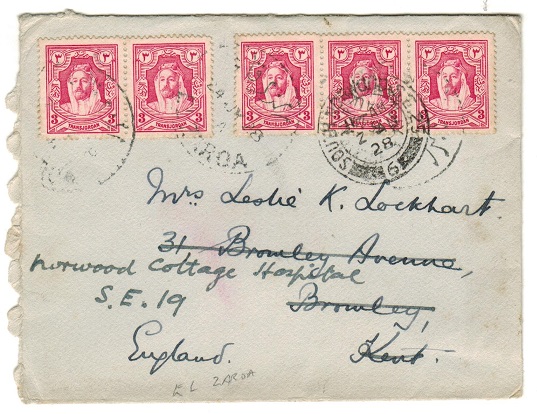 ٣ ٣ ٣ ٣ ٣ ٣ ٣ ٣ ٣ ٣
3 TRANSJORDAN 3 TRANSJORDAN 3 3 TRANSJORDAN 3 TRANSJORDAN 3 TRANSJORDAN 3
28
6
Mrs Leslie K. Lockhart.
31 Bromley Avenue,
Norwood Cottage Hospital
S.E. 19
Bromley,
England.
Kent.
EL ZAROA